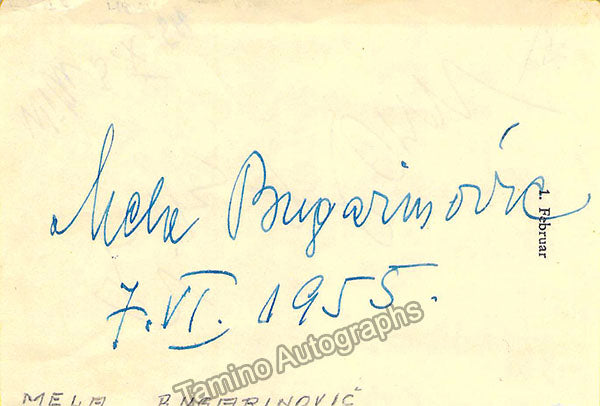 Mela Bugarinović
7.VI. 1955.
1. Februar
MELA BUGARINOVIĆ
Tamino Autographs